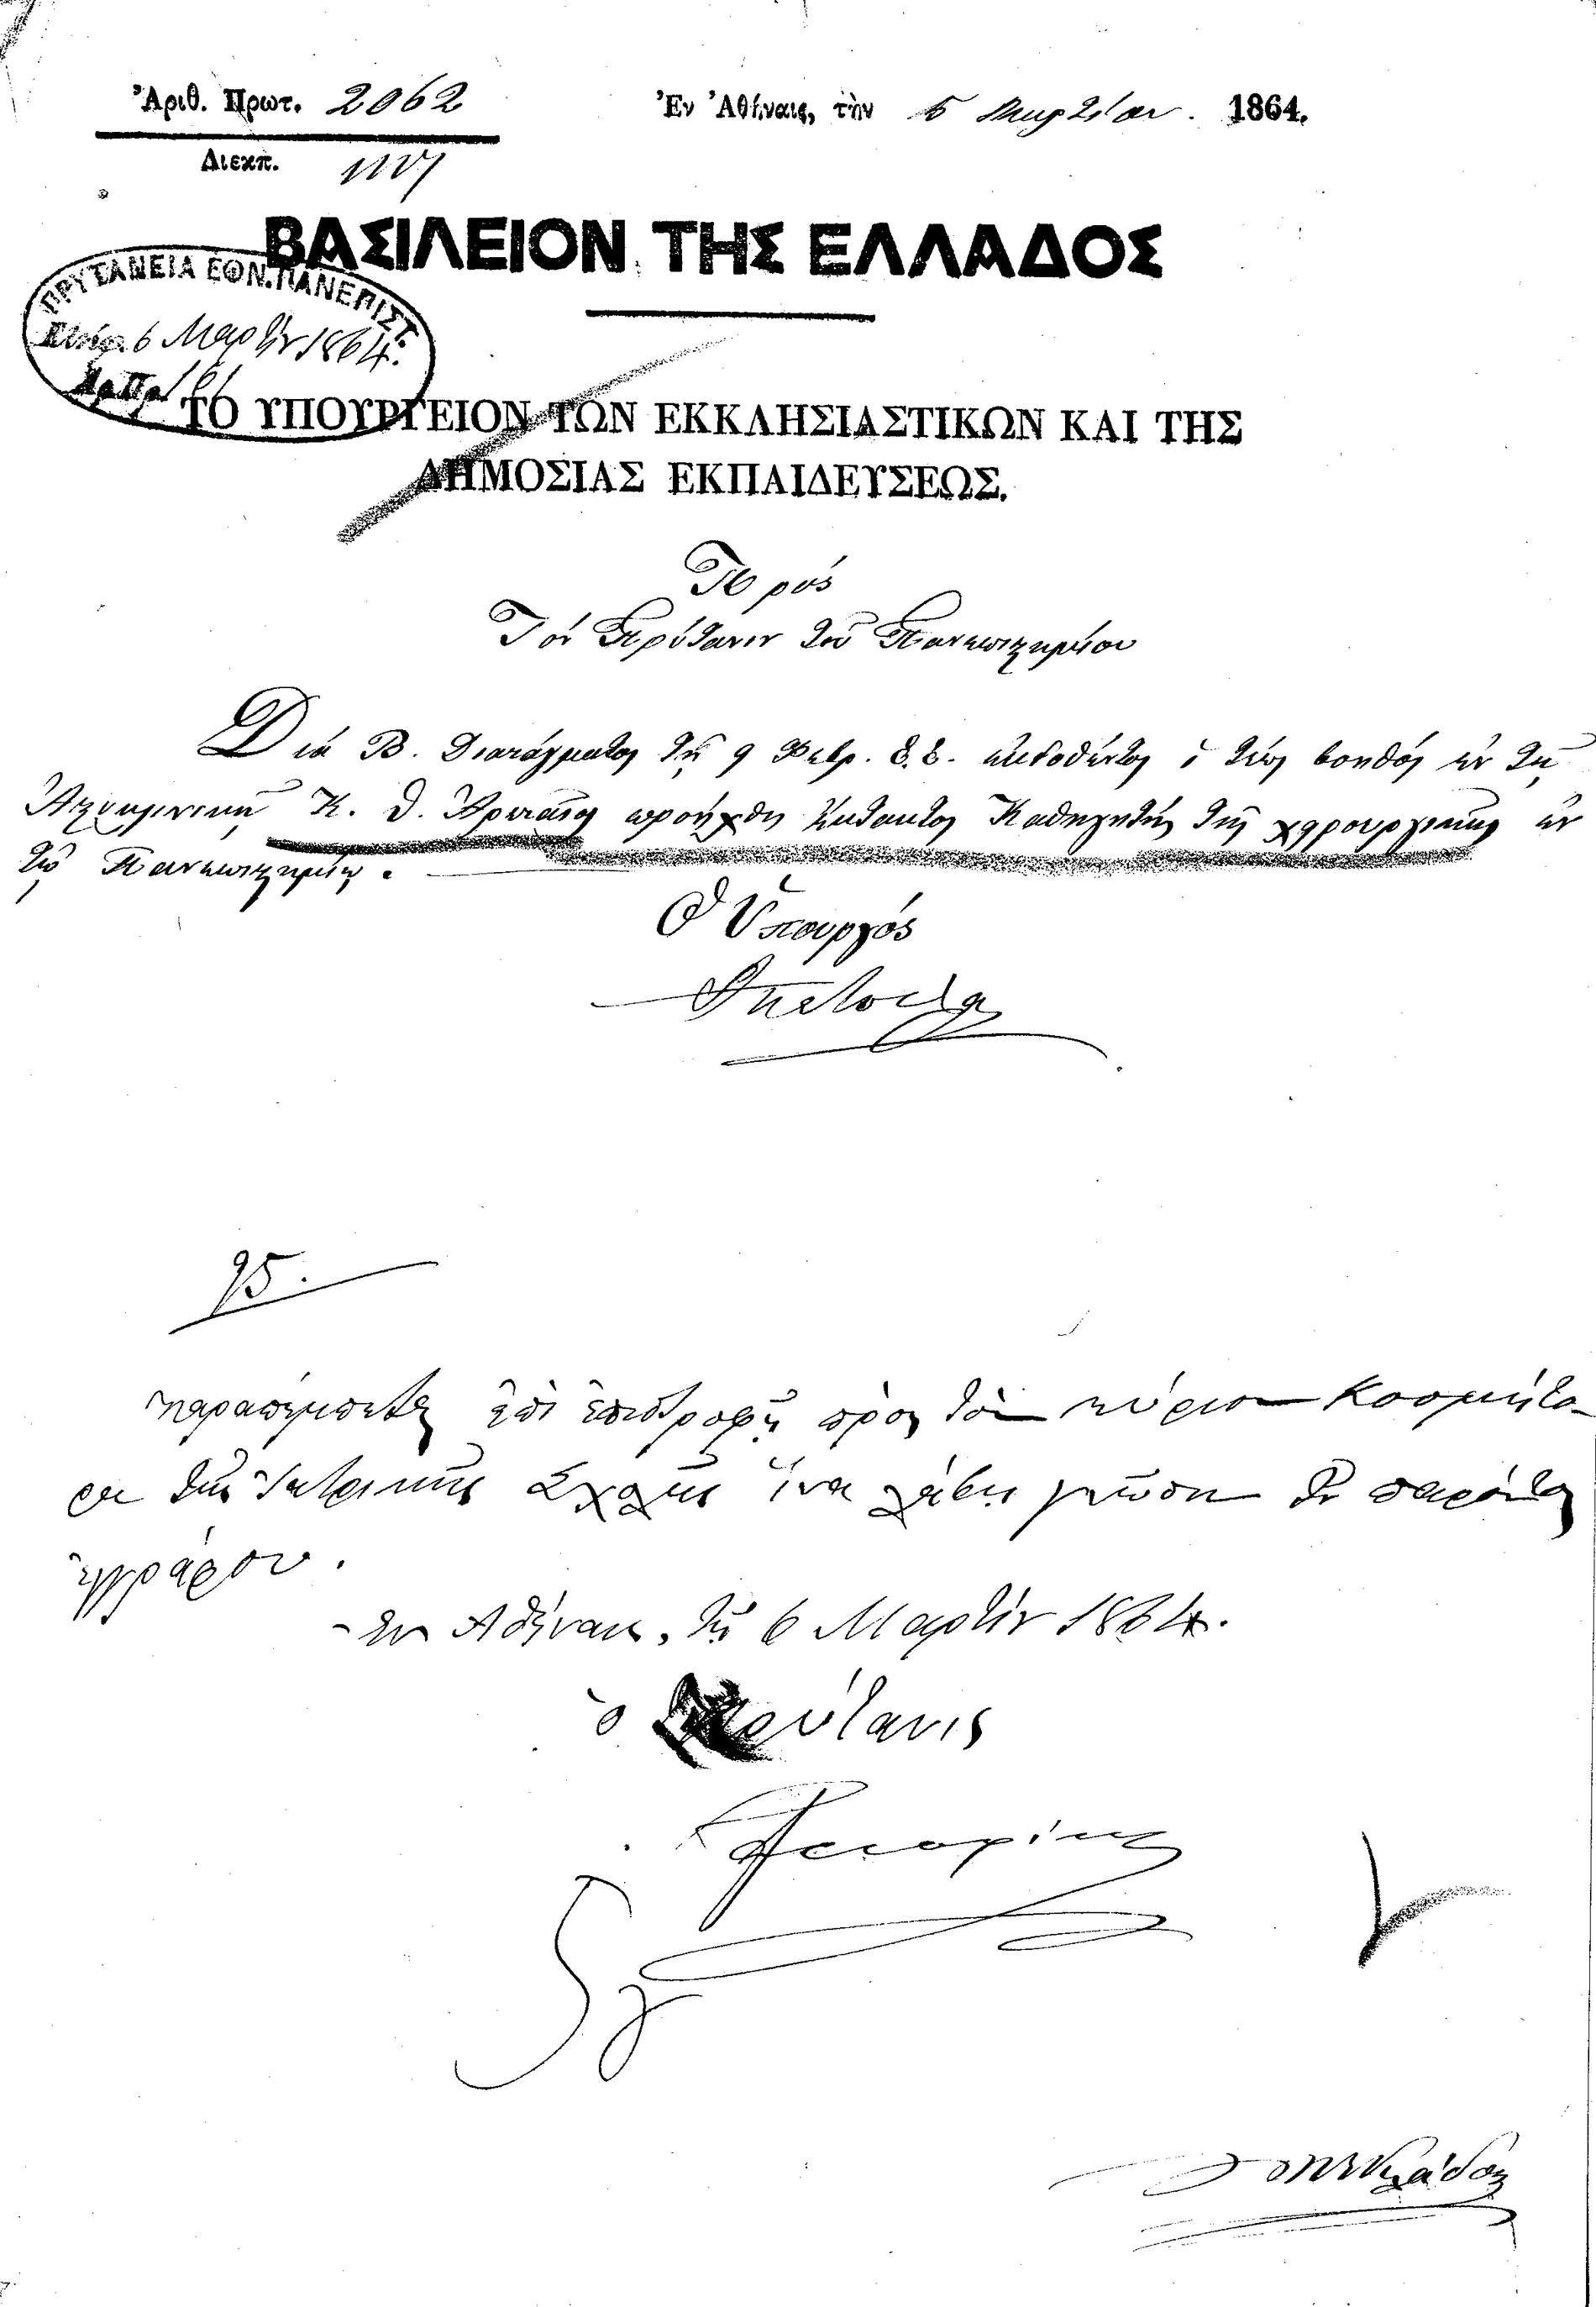 Ἀριθ. Πρωτ. 2062
Διεκπ.
Ἐν Ἀθήναις, τὴν 5 Μαρτίου. 1864.
ΒΑΣΙΛΕΙΟΝ ΤΗΣ ΕΛΛΑΔΟΣ
ΠΡΥΤΑΝΕΙΑ ΕΘΝ. ΠΑΝΕΠΙΣΤ.
6 Μαρτίου 1864.
ΤΟ ΥΠΟΥΡΓΕΙΟΝ ΤΩΝ ΕΚΚΛΗΣΙΑΣΤΙΚΩΝ ΚΑΙ ΤΗΣ
ΔΗΜΟΣΙΑΣ ΕΚΠΑΙΔΕΥΣΕΩΣ.
Πρός
Τὸν Πρύτανιν τοῦ Πανεπιστημίου
Διὰ Β. Διατάγματος τῆς 9 Φεβρ. ἐ.ἔ. ἐκδοθέντος ὁ τέως βοηθὸς ἐν τῇ
Ἀστυκλινικῇ Κ. Θ. Ἀρεταῖος προήχθη ἔκτακτος Καθηγητὴς τῆς χειρουργικῆς ἐν
τῷ Πανεπιστημίῳ.
Ὁ Ὑπουργός
95.
παραπέμπεται ἐπὶ ἐπιστροφῇ πρὸς τὸν κύριον Κοσμήτο-
ρα τῆς Ἰατρικῆς Σχολῆς ἵνα λάβῃ γνῶσιν τοῦ παρόντος
ἐγγράφου.
Ἐν Ἀθήναις, τῇ 6 Μαρτίου 1864.
ὁ Πρύτανις